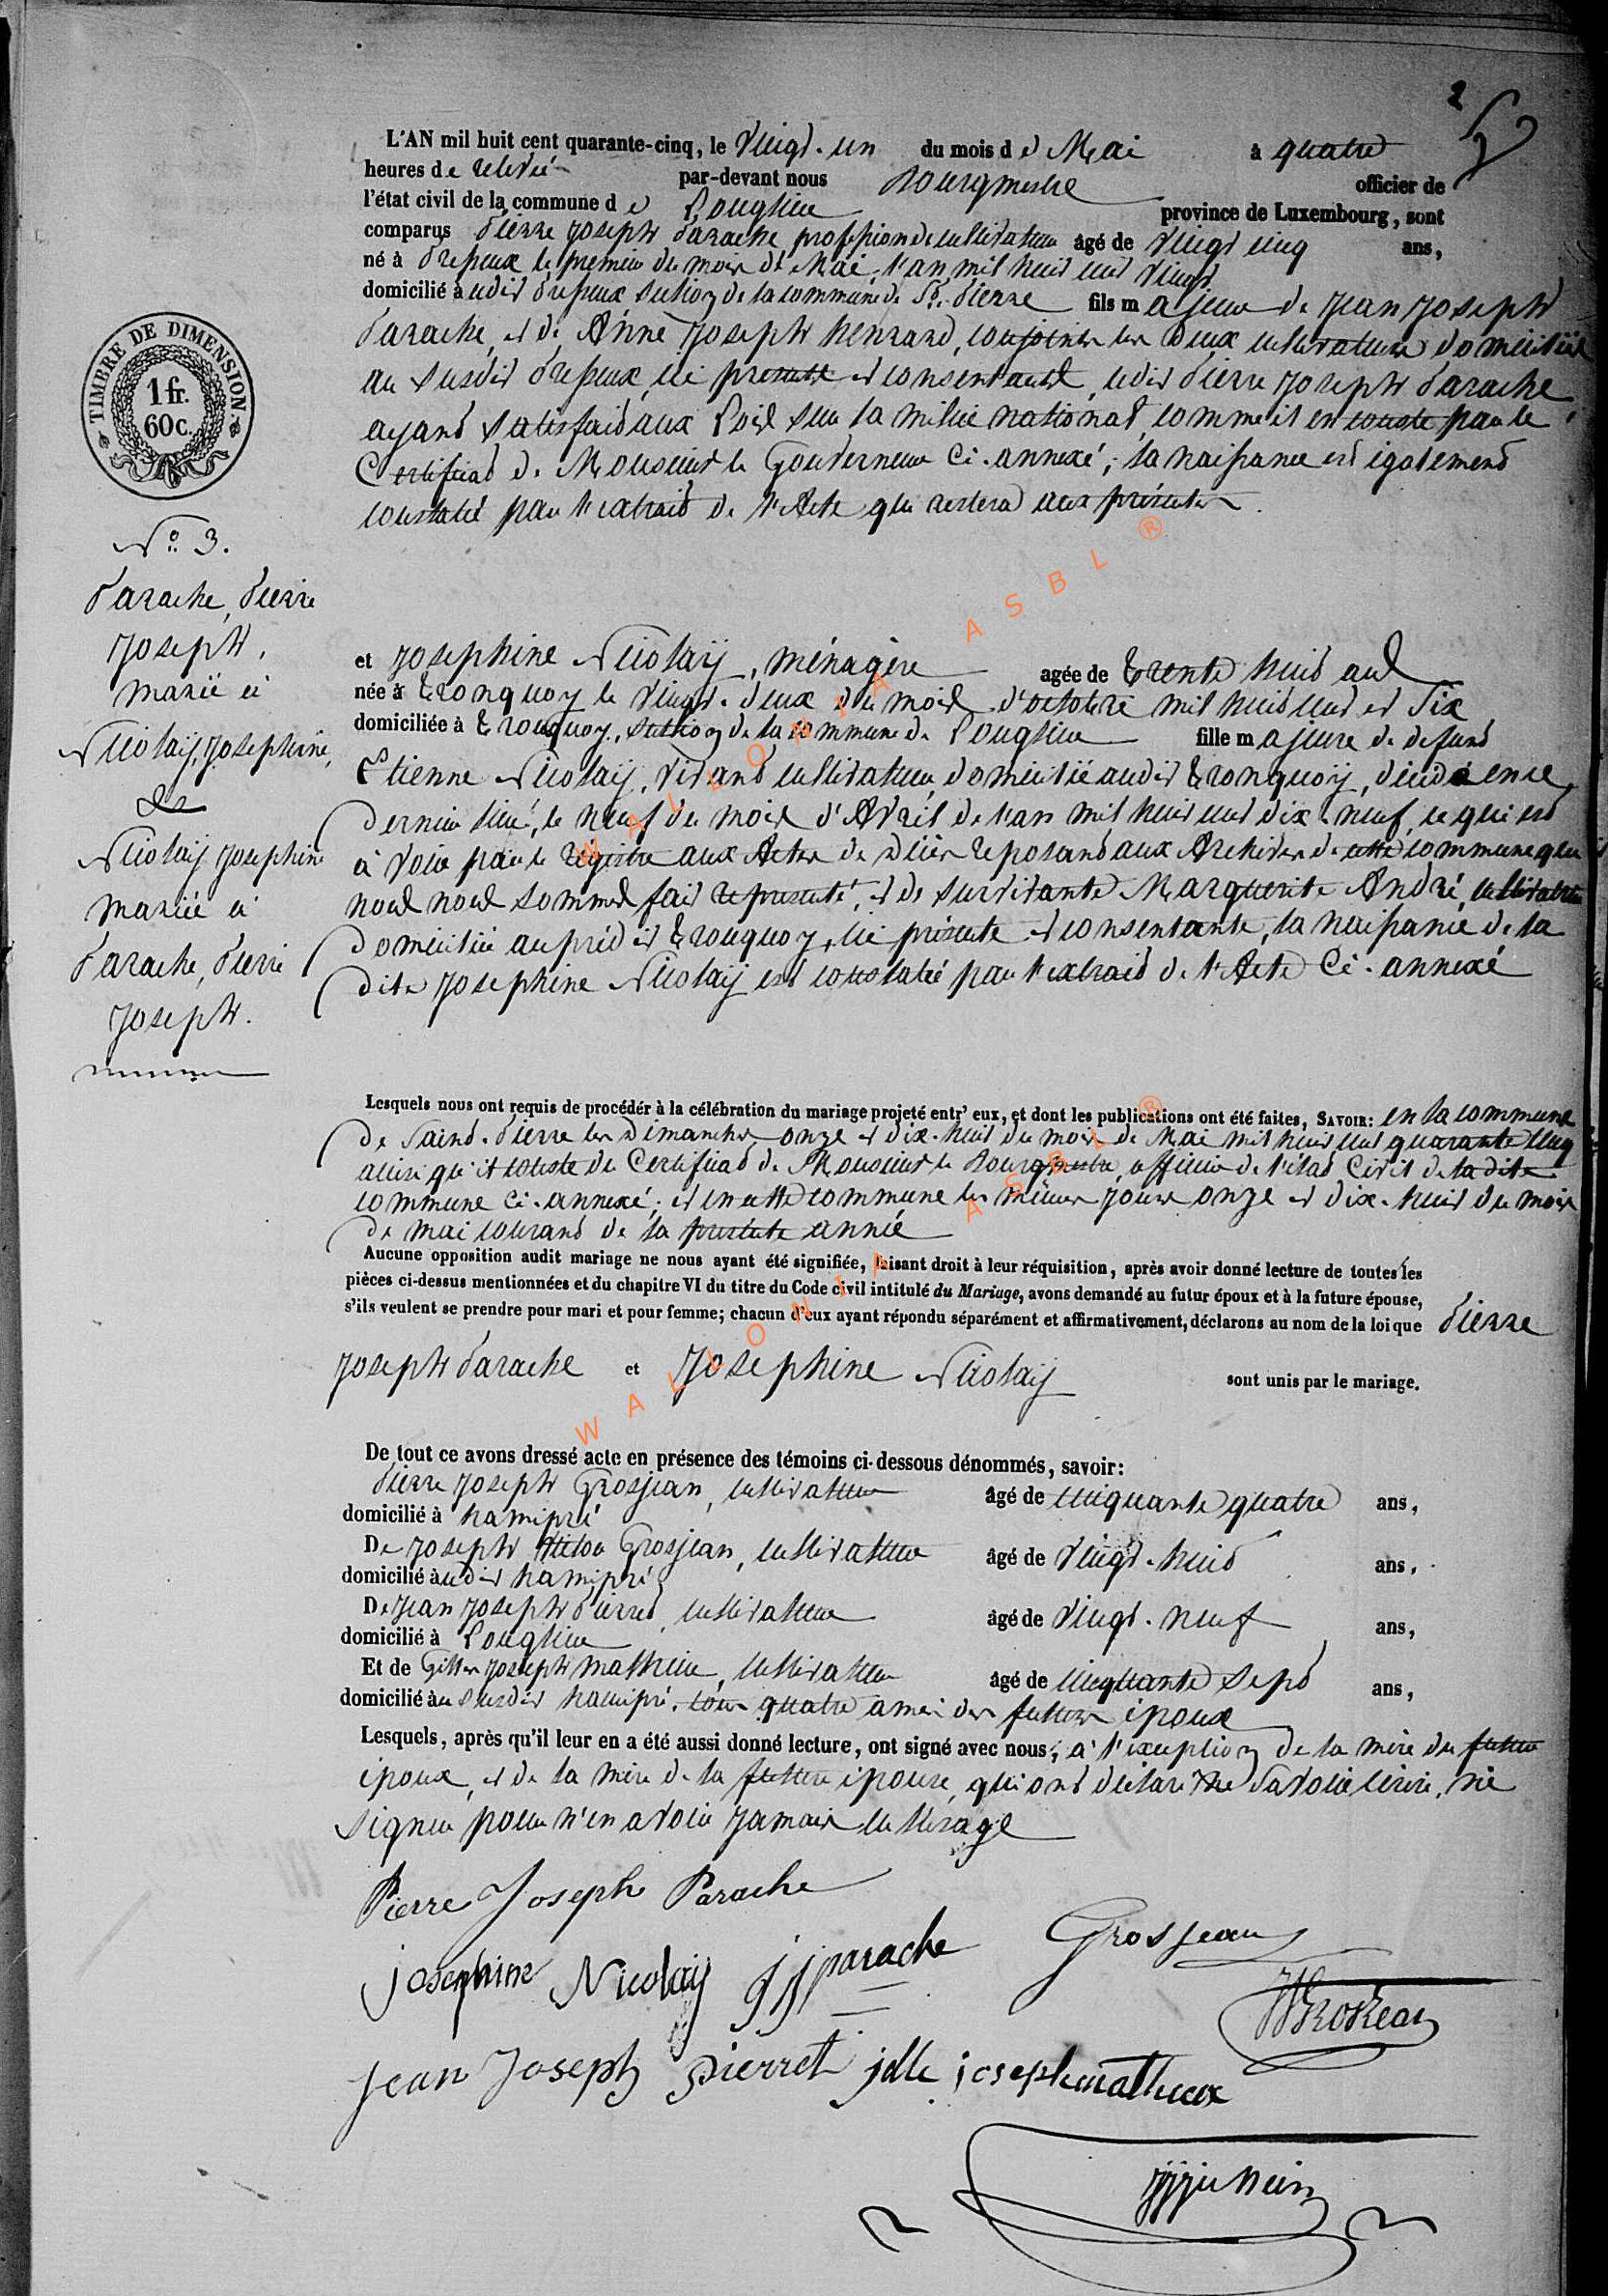 2
L'AN mil huit cent quarante-cinq, le vingt-un du mois de Mai à quatre
heures de relevée par-devant nous Bourgmestre officier de
l'état civil de la commune de Longlier province de Luxembourg, sont
comparus Pierre Joseph Parache profession de cultivateur âgé de vingt cinq ans,
né à Respeux le premier du mois de Mai l'an mil huit cent vingt
domicilié à section de la commune de St. Pierre fils majeur de Jean Joseph
Parache, et de Anne Joseph henrard, conjoints les deux cultivateurs domiciliés
au susdit ici present et consentant, ledit Pierre Joseph Parache
ayant satisfait aux Lois sur la milice national, comme il en conste par le
Certificat de Monsieur le Gouverneur Ci-annexé; sa naissance est également
constatée par l'extrait de l'Acte qui restera aux présentes.
TIMBRE DE DIMENSION
1 fr.
60 c.
No. 3.
Parache, Pierre
Joseph,
marié à
Nicolaÿ, Josephine,
&
Nicolaÿ Josephine
mariée à
Parache, Pierre
Joseph.
et Josephine Nicolaÿ, ménagère agée de trente huit ans
née à Tronquoy le vingt-deux du mois d'octobre mil huit cent et six
domiciliée à Tronquoy, section de la commune de Longlier fille majeure de defunt
Etienne Nicolaÿ, vivant cultivateur, domicilié audit Tronquoÿ, décédé en ce
dernier lieu, le neuf du mois d'Avril de l'an mil huit cent dix-neuf, ce qui est
à voir par le registre aux Actes de Décès reposant aux Archives de cette commune que
nous nous sommes fait representé, et de survivante Marguerite André, cultivatrice
domiciliée au prédit Tronquoy, ici présente et consentante, la naissance de la
dite Josephine Nicolaÿ est constatée par l'extrait de l'Acte Ci-annexé
Lesquels nous ont requis de procéder à la célébration du mariage projeté entr' eux, et dont les publications ont été faites, SAVOIR: en la commune
de Saint-Pierre les Dimanches onze et dix-huit du mois de Mai mil huit cent quarante cinq
ainsi qu'il conste du Certificat de Monsieur le Bourgmestre, officier de l'état Civil de la dite
commune ci-annexé; et en cette commune les mêmes jours onze et dix-huit du mois
de mai courant de la présente année
Aucune opposition audit mariage ne nous ayant été signifiée, faisant droit à leur réquisition, après avoir donné lecture de toutes les
pièces ci-dessus mentionnées et du chapitre VI du titre du Code civil intitulé du Mariage, avons demandé au futur époux et à la future épouse,
s'ils veulent se prendre pour mari et pour femme; chacun d'eux ayant répondu séparément et affirmativement, déclarons au nom de la loi que Pierre
Joseph Parache et Josephine Nicolaÿ sont unis par le mariage.
De tout ce avons dressé acte en présence des témoins ci-dessous dénommés, savoir:
Pierre Joseph Grosjean, cultivateur âgé de cinquante quatre ans,
domicilié à hamipré
De Joseph Grosjean, cultivateur âgé de vingt-huit ans,
domicilié audit hamipré
De Jean Joseph Pierret, cultivateur âgé de vingt-neuf ans,
domicilié à Longlier
Et de Gilles Joseph Mathieu, cultivateur âgé de cinquante sept ans,
domicilié au susdit hamipré, tous quatre amis des futurs époux
Lesquels, après qu'il leur en a été aussi donné lecture, ont signé avec nous, à l'exception de la mère du futur
époux, et de la mère de la future épouse, qui ont déclaré ne savoir écrire, ni
signer pour n'en avoir jamais eu l'usage
Pierre Joseph Parache
josephine Nicolaÿ JJ parache Grosjean
Jean Joseph pierret jille joseph mathieux
WALLONIA ASBL ®
WALLONIA ASBL ®